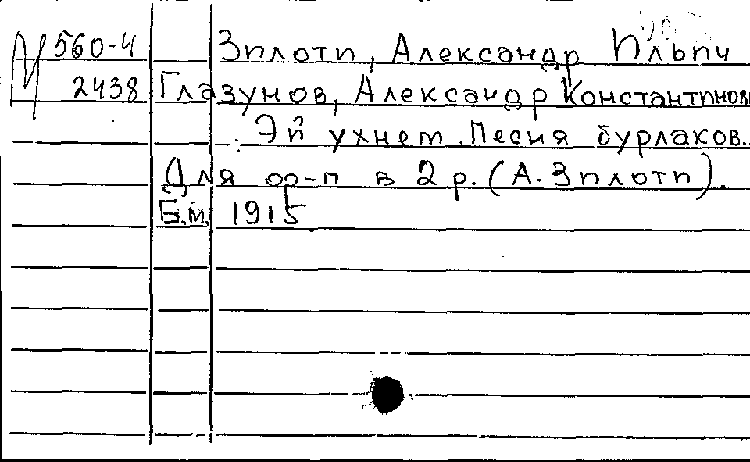 560-4 Зилоти, Александр Ильич
2438 Глазунов, Александр Константинов
Эй ухнем. Песня бурлаков.
Для ор-п в 2 р. (А. Зилоти).
Б.м. 1915